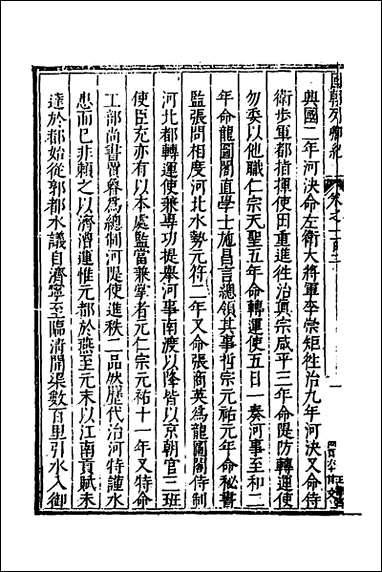 國朝列卿紀
卷之一百
興國二年河決命左衛大將軍李崇矩往治九年河決又命侍
衛步軍都指揮使田重進往治真宗咸平三年命隄防轉運使
勿委以他職仁宗天聖五年命轉運使五日一奏河事至和二
年命龍圖閣直學士施昌言總領其事哲宗元祐元年命秘書
監張問相度河北水勢元符二年又命張商英為龍圖閣待制
河北都轉運使兼專功提舉河事南渡以降皆以京朝官三班
使臣充亦有以本處監當兼管者元仁宗元祐十一年又特命
工部尚書賈魯為總制河隄使進秩二品然歷代治河特謹水
患而已非賴之以濟漕運惟元都於燕至元末以江南貢賦未
達於都始從郭都水議自濟寧至臨清開渠數百里引水入御